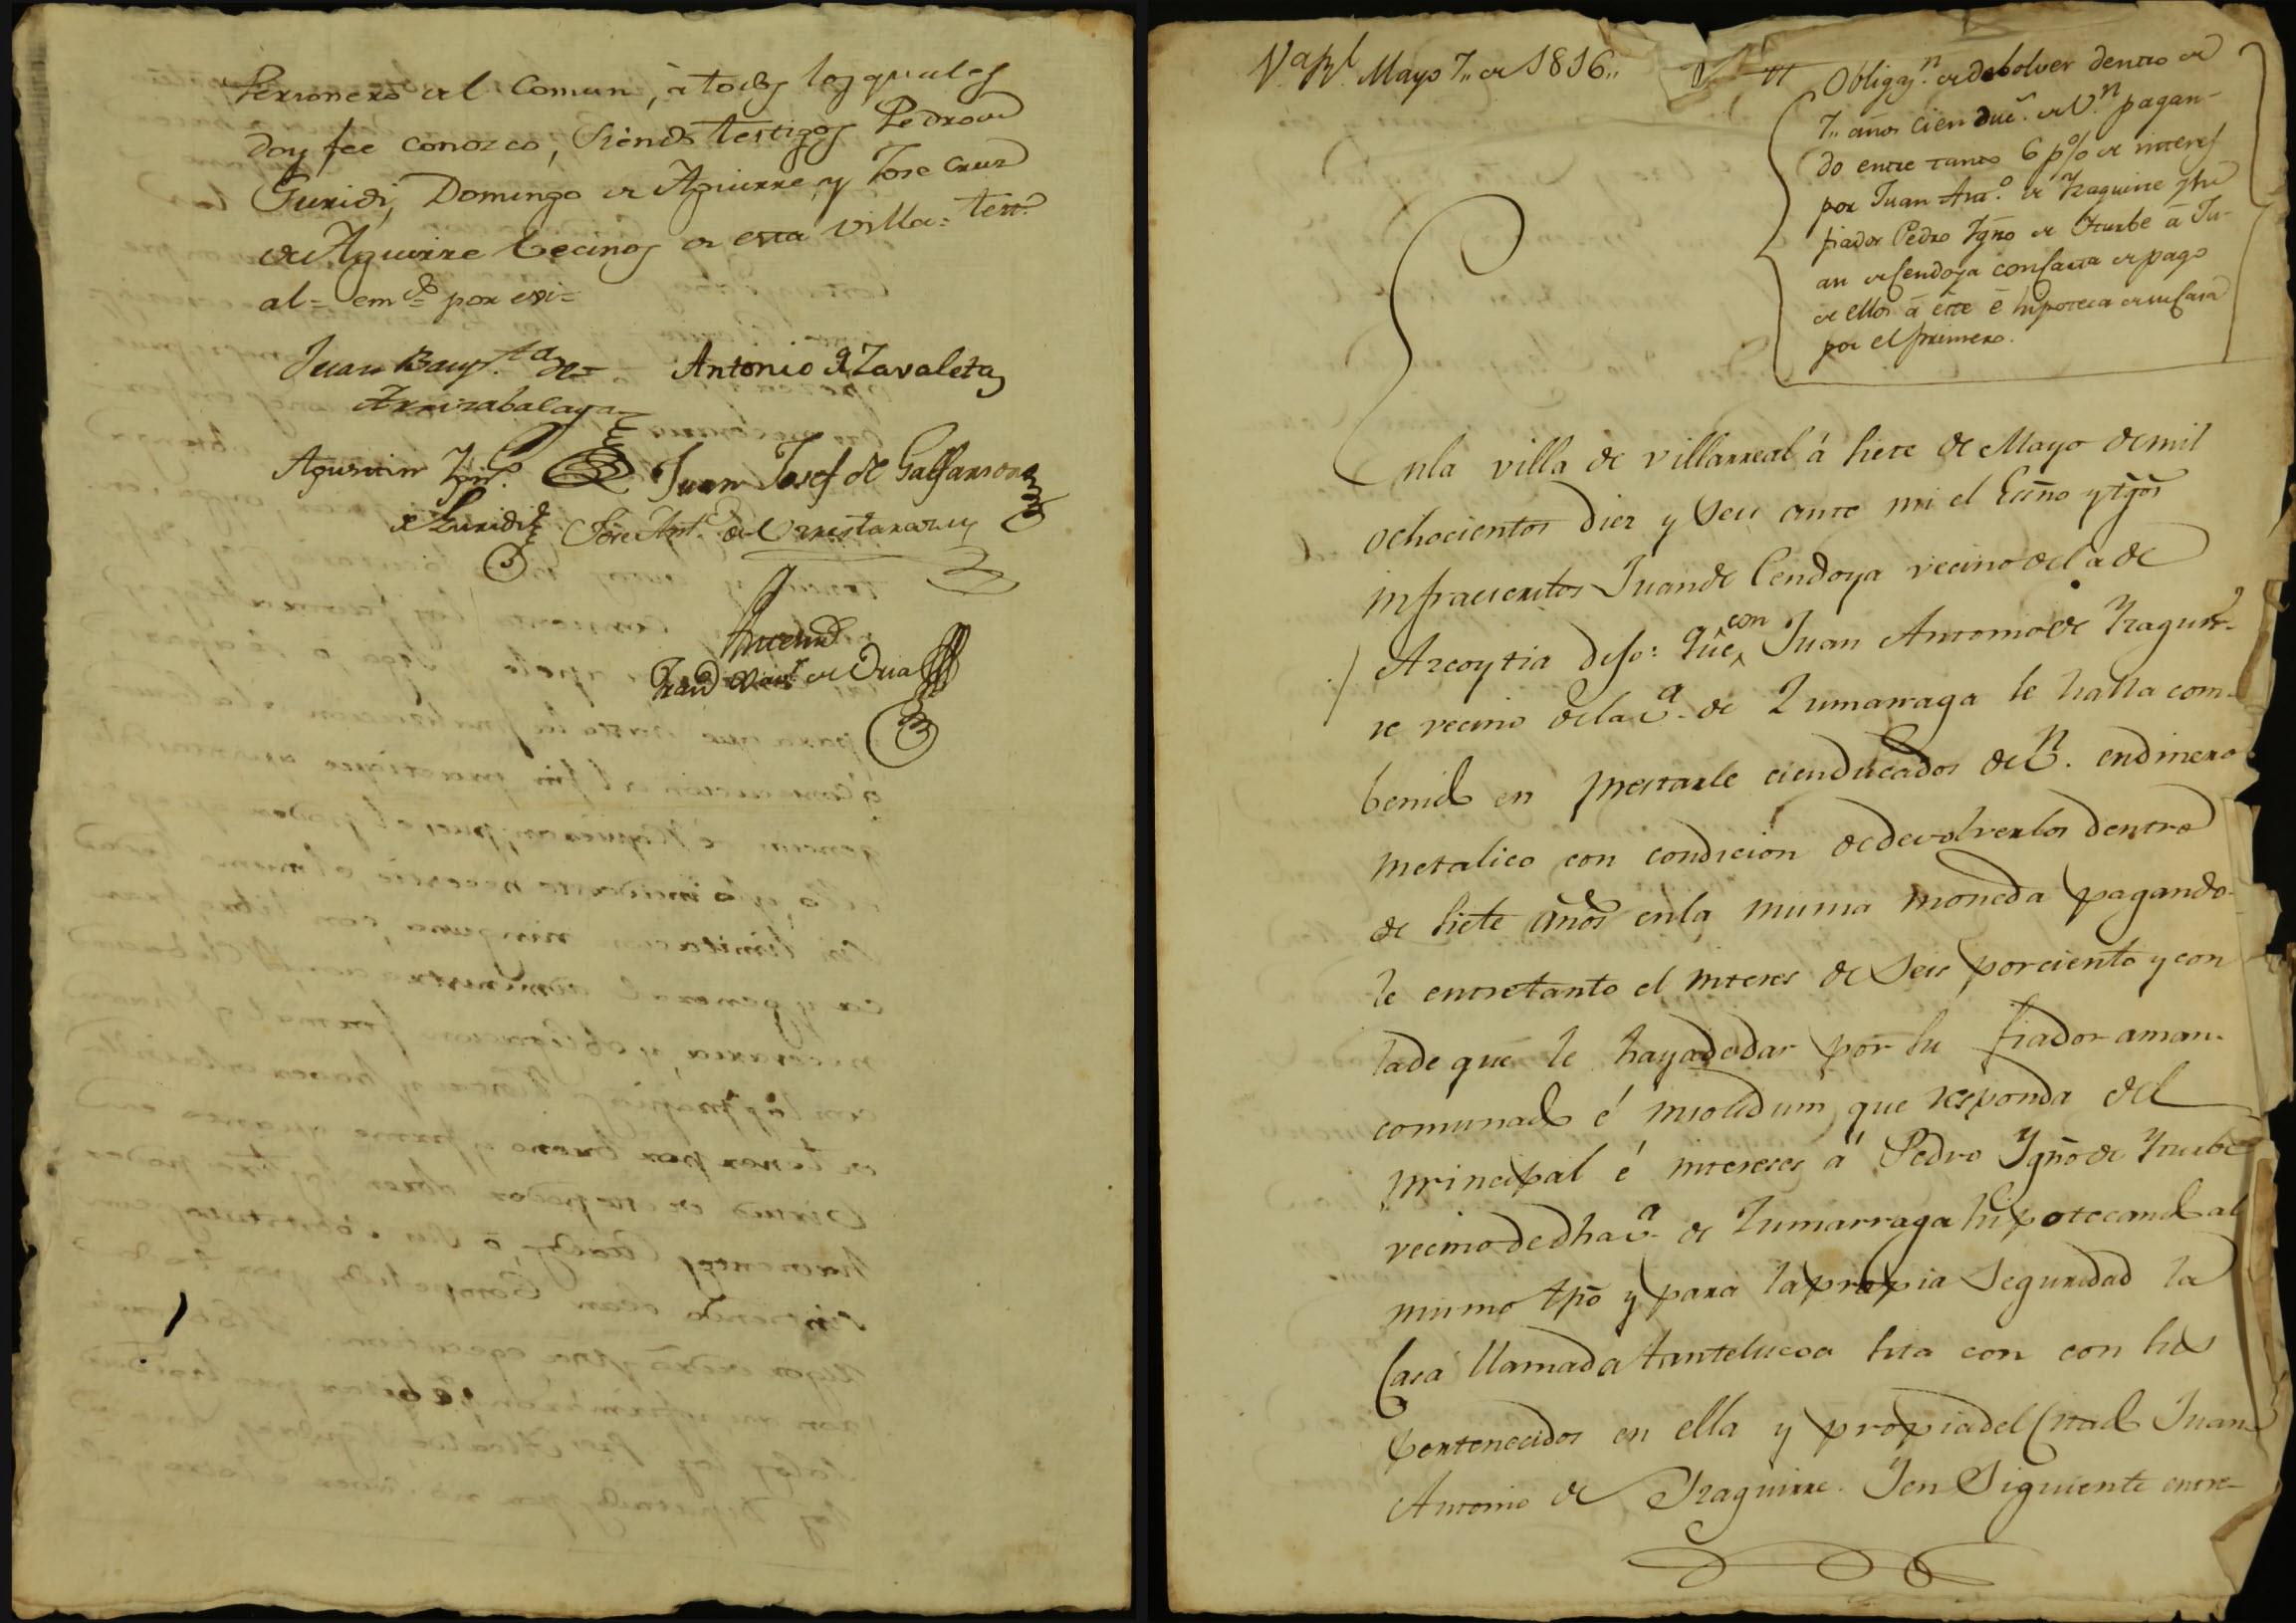 Personero del Comun, à todos los quales
doy fee conozco, siendo testigos Pedro de
Guridi, Domingo de Aguirre, y Jose Cruz
de Aguirre becinos de esta Villa= test.º
al= em.do por esi=
Juan Baup.ta de=
Arrizabalaga
Antonio de Zavaleta
Agustin Ygn.º
de Guridi
Juan Josef de Galfarsoro
Jose Ant.º de Urrestarazu
Ante mi
de Oria
V.a R.l Mayo 7,, de 1816,,
Obligaz.n de debolver dentro de
7,, años cien duc.s de V.n pagan-
do entre tanto 6 p% de interes
por Juan Ant.º de Yzaguirre y su
fiador Pedro Ygño de Yturbe á Ju-
an de Cendoya con carta de pago
de ellos á éste é hipoteca de su Casa
por el primero.
Enla villa de villarreal á siete de Mayo demil
ochocientos diez y seis ante mi el Esño y tgõs
infraescritos Juan de Cendoya vecino dela de
Azcoytia dijo: Que con Juan Antonio de Yzaguir-
re vecino dela v.a de Zumarraga se halla com-
benido en prestarle cienducados de v.n endinero
metalico con condicion dedevolverlos dentro
de siete años enla misma moneda pagando-
le entretanto el interes de seis porciento y con
lade que le hayadedar por su fiador aman-
comunado é insolidum que responda del
principal é intereses á Pedro Ygño de Yturbe
vecino dedha v.a de Zumarraga hipotecando al
mismo tpõ y para lapropia seguridad la
Casa llamada Antelucoa sita con con sus
pertenecidos en ella y propiadel Citado Juan
Antonio de Yzaguirre. Yen Siguiente entre-